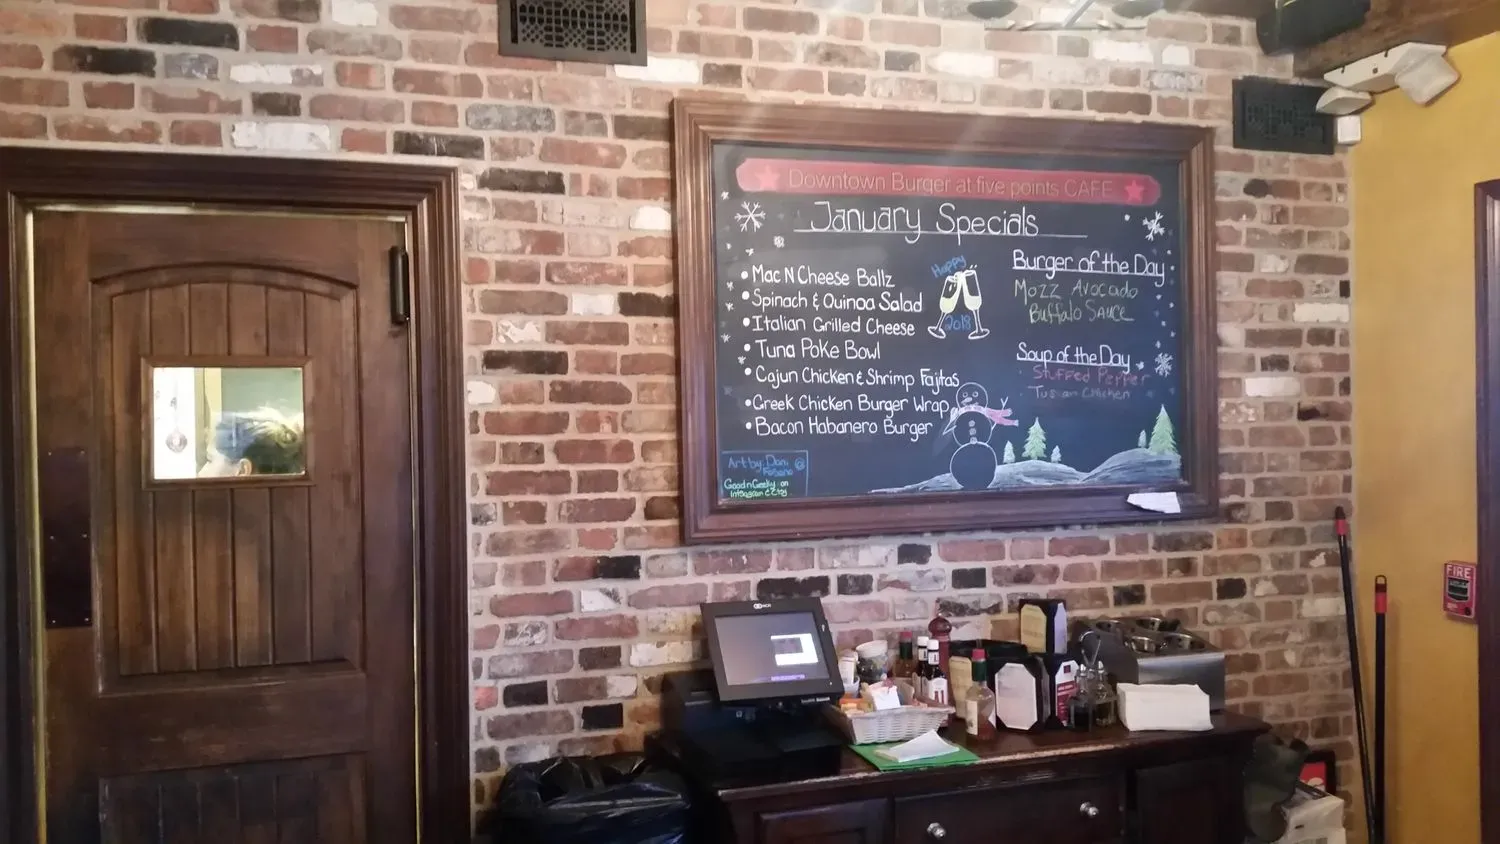 Downtown Burger at five points CAFE
January Specials
• Mac N Cheese Ballz
• Spinach & Quinoa Salad
• Italian Grilled Cheese
• Tuna Poke Bowl
• Cajun Chicken & Shrimp Fajitas
• Greek Chicken Burger Wrap
• Bacon Habanero Burger
Happy
2018
Burger of the Day
Mozz Avocado
Buffalo Sauce
Soup of the Day
Stuffed Pepper
Tuscan Chicken
Art by: Dani
GoodnGeeky on
Instagram & Etsy
NCR
FIRE